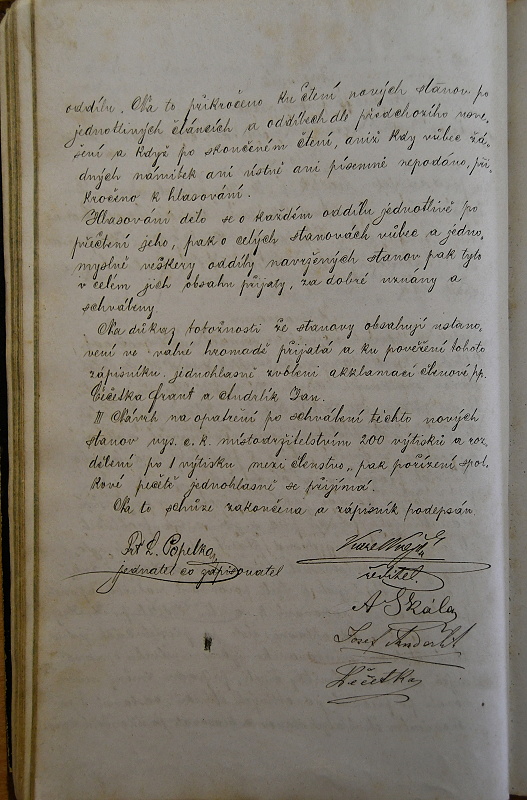 oddílu. Na to přikročeno ku čtení nových stanov po
jednotlivých článcích a oddílech dle předchozího usne-
šení a když po skončeném čtení, aniž kdy vůbec žá-
dných námitek ani ústně ani písemně nepodáno, při-
kročeno k hlasování.
Hlasování dělo se o každém oddílu jednotlivě po
přečtení jeho, pak o celých stanovách vůbec a jedno-
myslně veškery oddíly navržených stanov pak tyto
v celém jich obsahu přijaty, za dobré uznány a
schváleny.
Na důkaz totožnosti že stanovy obsahují ustano-
vení ve valné hromadě přijatá a ku pověření tohoto
zápisníku jednohlasně zvoleni akklamací členové pp.
Čečetka Frant a Jan.
III Návrh na opatření po schválení těchto nových
stanov vys. c. k. místodržitelstvím 200 výtisků a roz-
dělení po 1 výtisku mezi členstvo, pak pořízení spol-
kové pečetě jednohlasně se přijímá.
Na to schůze zakončena a zápisník podepsán
Popelka
jednatel co zapisovatel
ředitel
A Skála
Josef
Čečetka